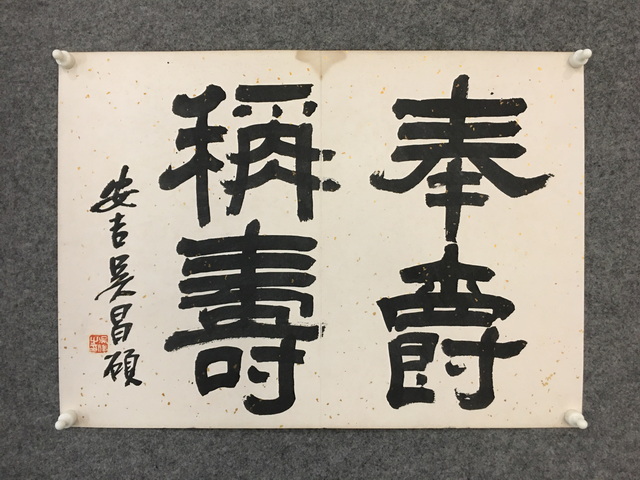 奉爵
稱壽
安吉吴昌碩